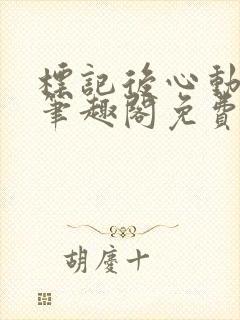 標記後心動
筆趣閣免費
胡慶十